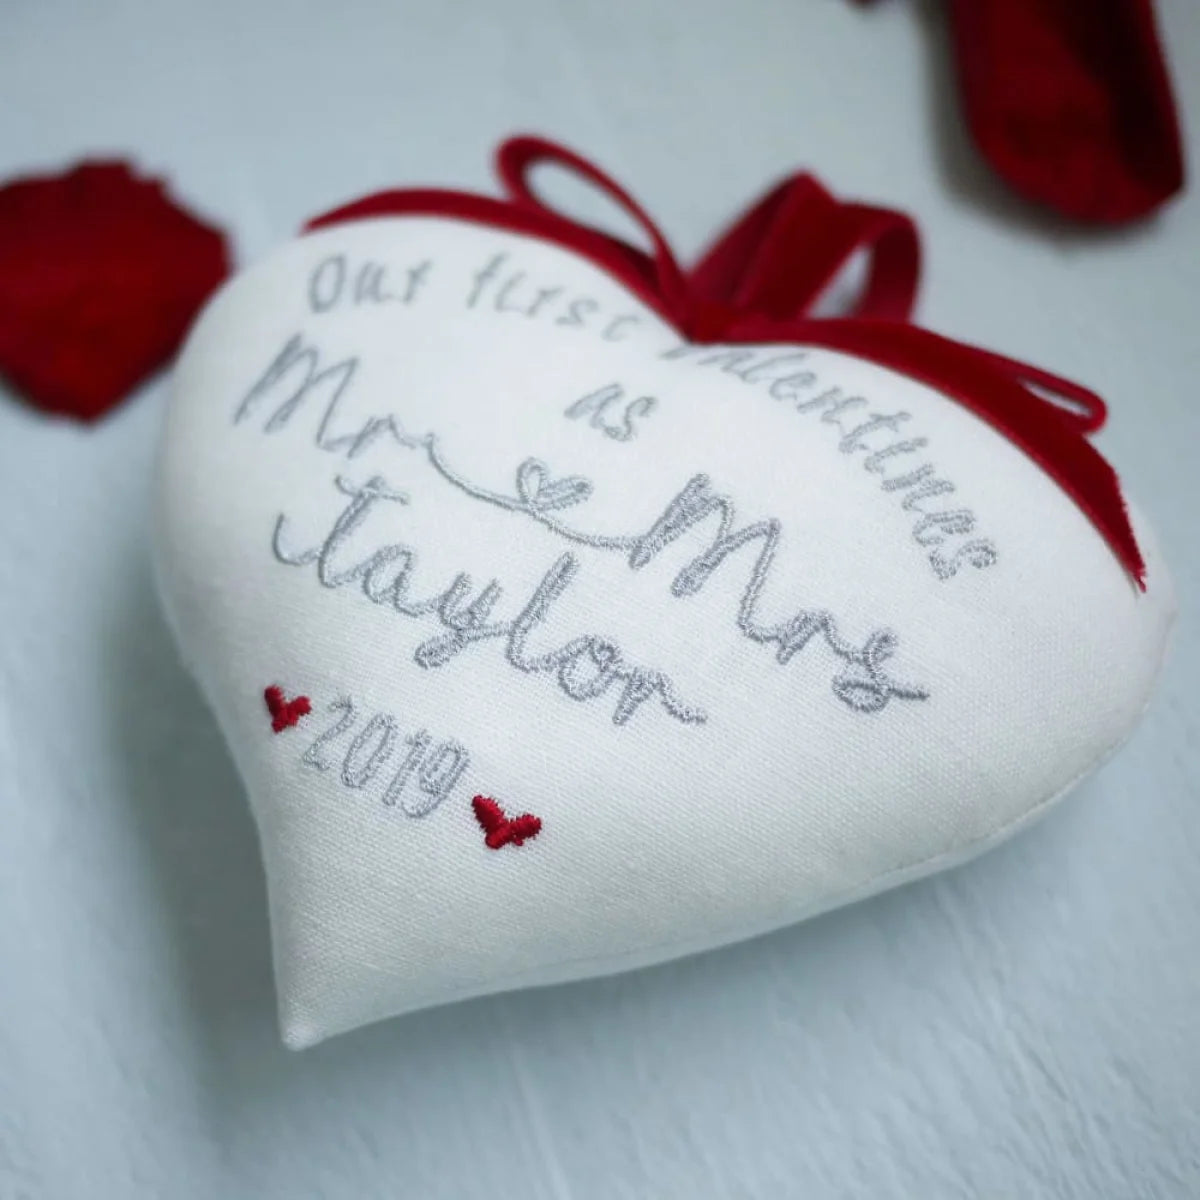 Our first Valentines
as
Mr Mrs
Taylor
2019